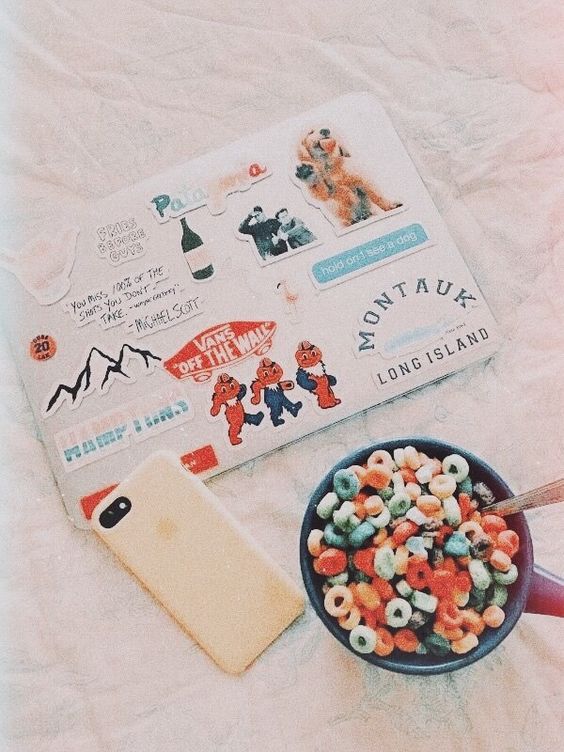 Patagonia
FRIES
BEFORE
GUYS
hold on I see a dog
"YOU MISS 100% OF THE
SHOTS YOU DON'T
TAKE. -wayne gretzky"
-MICHAEL SCOTT-
MONTAUK
LONG ISLAND
VANS
"OFF THE WALL"
20
HAMPTONS